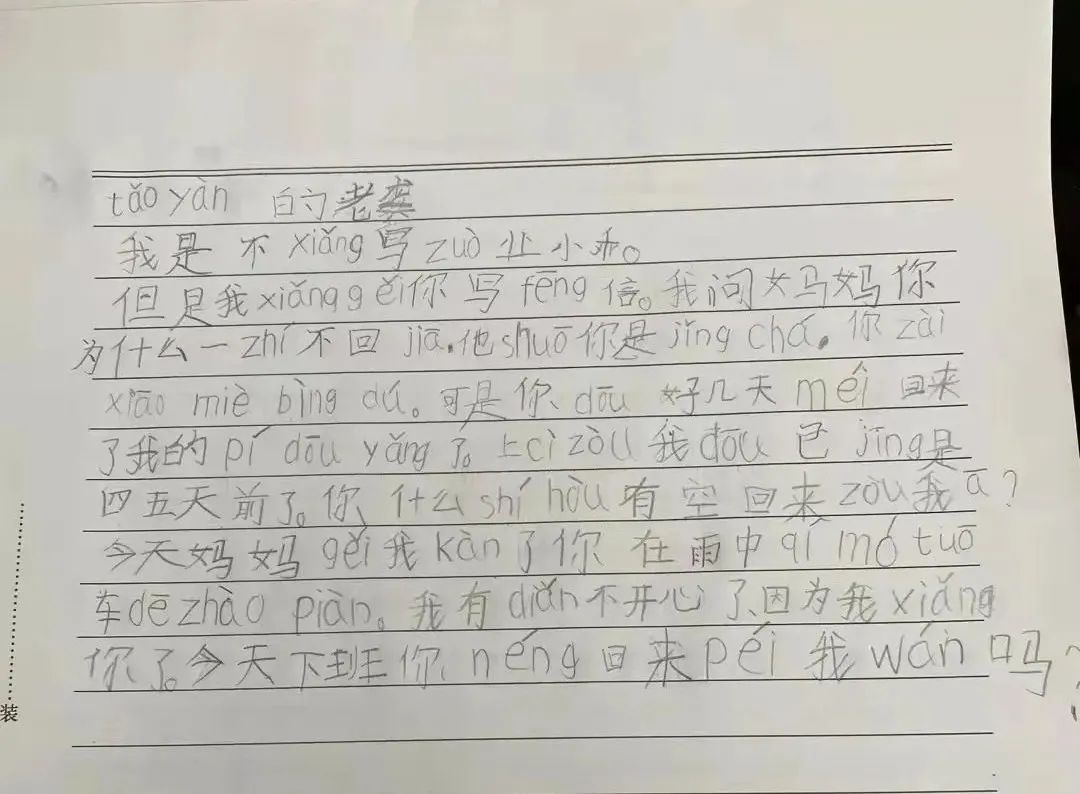 tǎo yàn 的老龚
我是不 xiǎng 写 zuò 业小乖。
但是我 xiǎng gěi 你写 fēng 信。我问妈妈你
为什么一 zhí 不回 jiā。他 shuō 你是 jǐng chá。你 zài
xiāo miè bìng dú。可是你 dōu 好几天 méi 回来
了我的 pí dōu yǎng 了。上 cì zòu 我 dōu 已 jīng 是
四五天前了。你什么 shí hòu 有空回来 zòu 我 ā？
今天妈妈 gěi 我 kàn 了你在雨中 qí mó tuō
车 dē zhào piàn。我有 diǎn 不开心了、因为我 xiǎng
你了。今天下班你 néng 回来 péi 我 wán 吗？
装